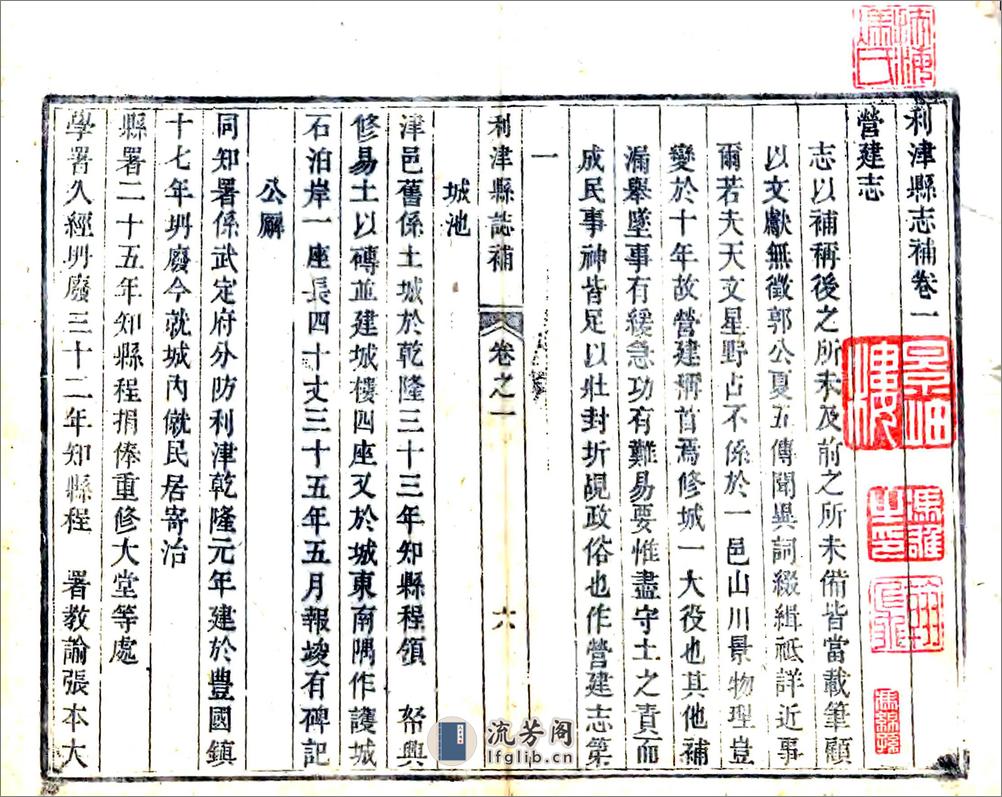 利津縣志補卷一
營建志
志以補稱後之所未及前之所未備皆當載筆顧
以文獻無徵郭公夏五傳聞異詞綴緝祗詳近事
爾若夫天文星野占不係於一邑山川景物理豈
變於十年故營建稱首焉修城一大役也其他補
漏舉墜事有緩急功有難易要惟盡守土之責而
成民事神皆足以壯封圻覘政俗也作營建志第
一
利津縣誌補 卷之一 六
城池
津邑舊係土城於乾隆三十三年知縣程領帑興
修易土以磚並建城樓四座又於城東南隅作護城
石泊岸一座長四十丈三十五年五月報竣有碑記
公廨
同知署係武定府分防利津乾隆元年建於豐國鎮
十七年坍廢今就城內僦民居寄治
縣署二十五年知縣程捐俸重修大堂等處
學署久經坍廢三十二年知縣程 署教諭張本大
流芳阁
lfglib.cn